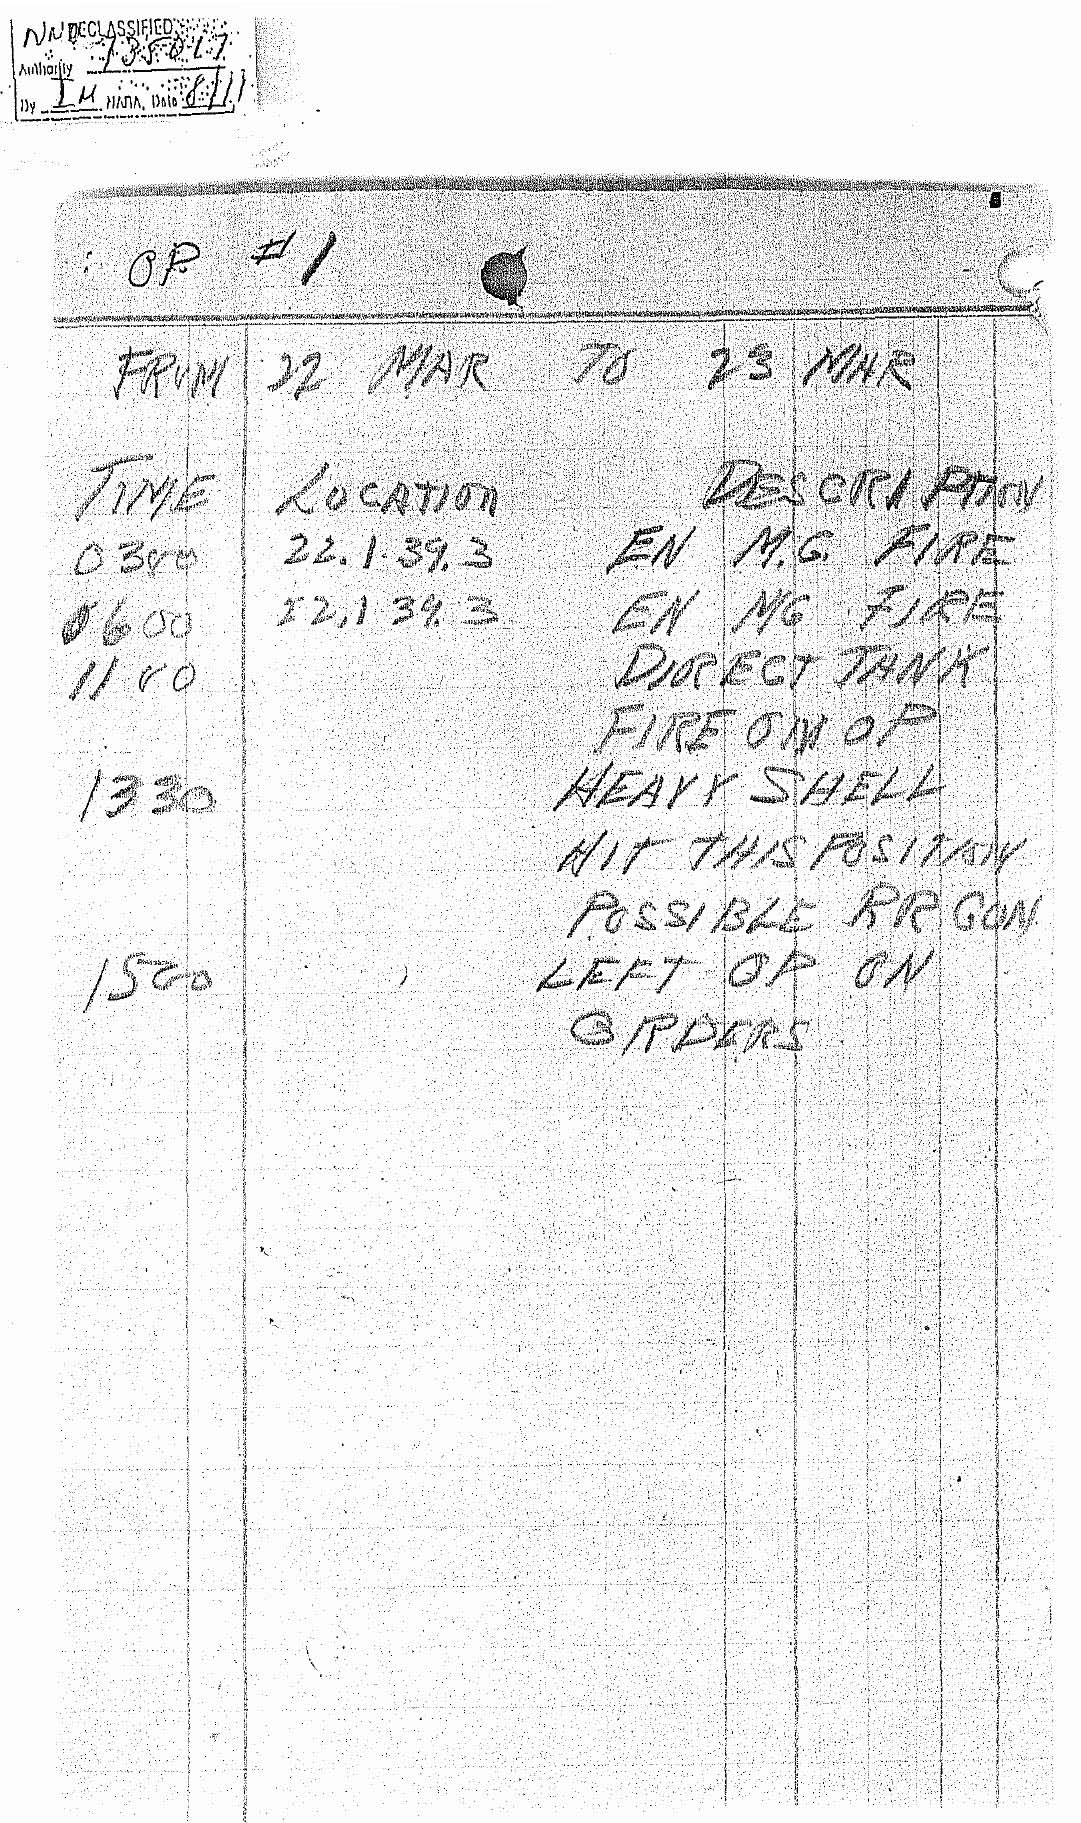 NND DECLASSIFIED
Authority 735017
By IM NARA, Date 8/11
OP #1
FROM 22 MAR TO 23 MAR
TIME LOCATION DESCRIPTION
0300 22.1-39.3 EN M.G. FIRE
0600 22.1 39.3 EN MG FIRE
1100 DIRECT TANK
FIRE ON OP
1330 HEAVY SHELL
HIT THIS POSITION
POSSIBLE RR GUN
1500 LEFT OP ON
ORDERS